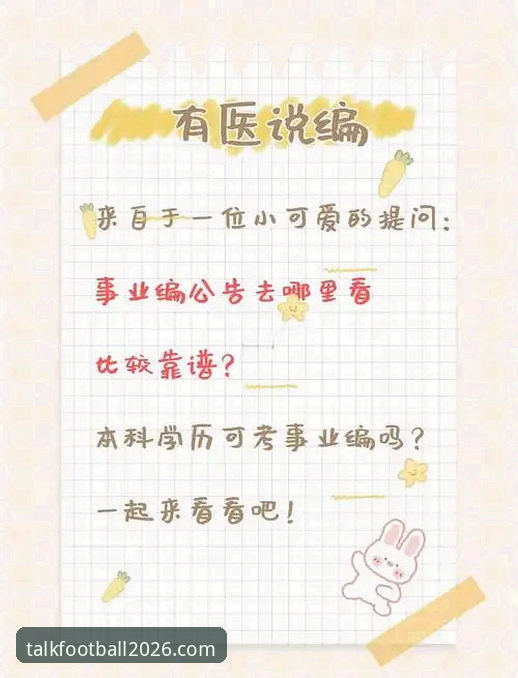 有医说编
来自于一位小可爱的提问:
事业编公告去哪里看
比较靠谱?
本科学历可考事业编吗?
一起来看看吧!
talkfootball2026.com